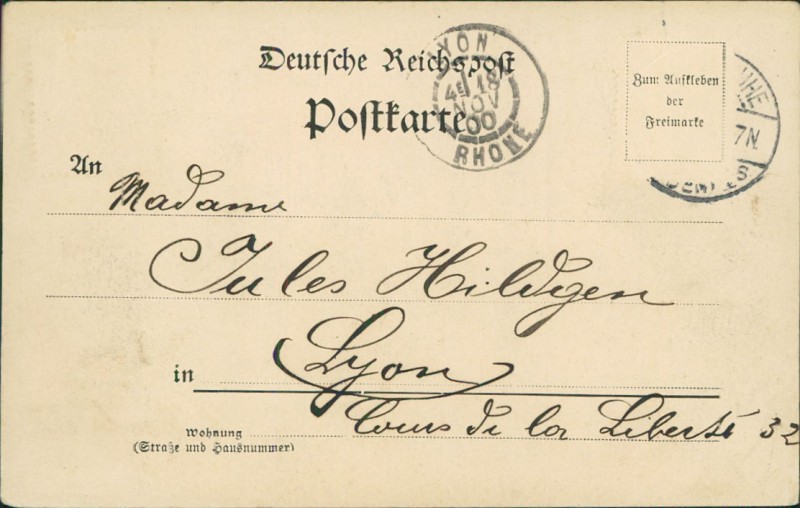 Deutsche Reichspost
Postkarte
LYON
4E 18
NOV
00
RHONE
Zum Aufkleben
der
Freimarke
7N.
An
Madame
Jules Hildgen
in Lyon
Wohnung Cours de la Liberté 32
(Straße und Hausnummer)